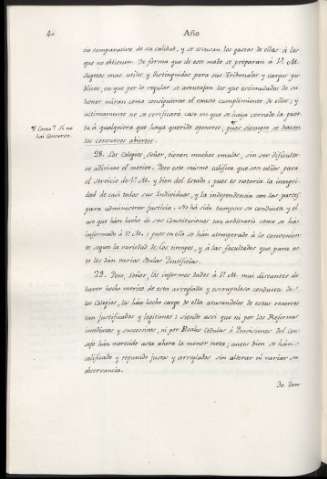 40
Año
cio comparativo de su calidad, y se escusan los gastos de ellas á los
que no obtienen. De forma que de este modo se preparan á V. M.
sugetos mas utiles y distinguidos para sus Tribunales y cargos pu-
blicos, en que por lo regular se aventajan los que estimulados de su
honor miran como consiguiente el exacto cumplimiento de ellos; y
ultimamente no se verificará caso en que se haya cerrado la puer-
ta á qualquiera que haya querido oponerse, pues siempre se hacen
los concursos abiertos.
28. Los Colegios, Señor, tienen muchos emulos, sin ser dificulto-
so adivinar el motivo. Pero esto mismo califica que son utiles para
el servicio de V. M. y bien del Estado; pues es notoria la integri-
dad de casi todos sus Individuos, y la independencia con las partes
para administrar justicia. No ha sido tampoco su conducta y el
uso que han hecho de sus Constituciones tan arbitrario como se ha
informado á V. M.; pues en ella se han atemperado á lo convenien-
te segun la variedad de los tiempos, y á las facultades que para es-
to les dan varias Bulas Pontificias.
29. Pero, Señor, los informes dados á V. M. muy distantes de
haver hecho merito de esta arreglada y escrupulosa conducta de
los Colegios, les han hecho cargo de ella acusandolos de estas razones
tan justificadas y legitimas; siendo assi que ni por los Reformas
insolitas y succesivas, ni por Reales Cedulas ó Provisiones del Con-
sejo han merecido acta ahora la menor nota; antes bien se han
calificado y reputado justas y arregladas sin alterar ni variar su
observancia.
De don